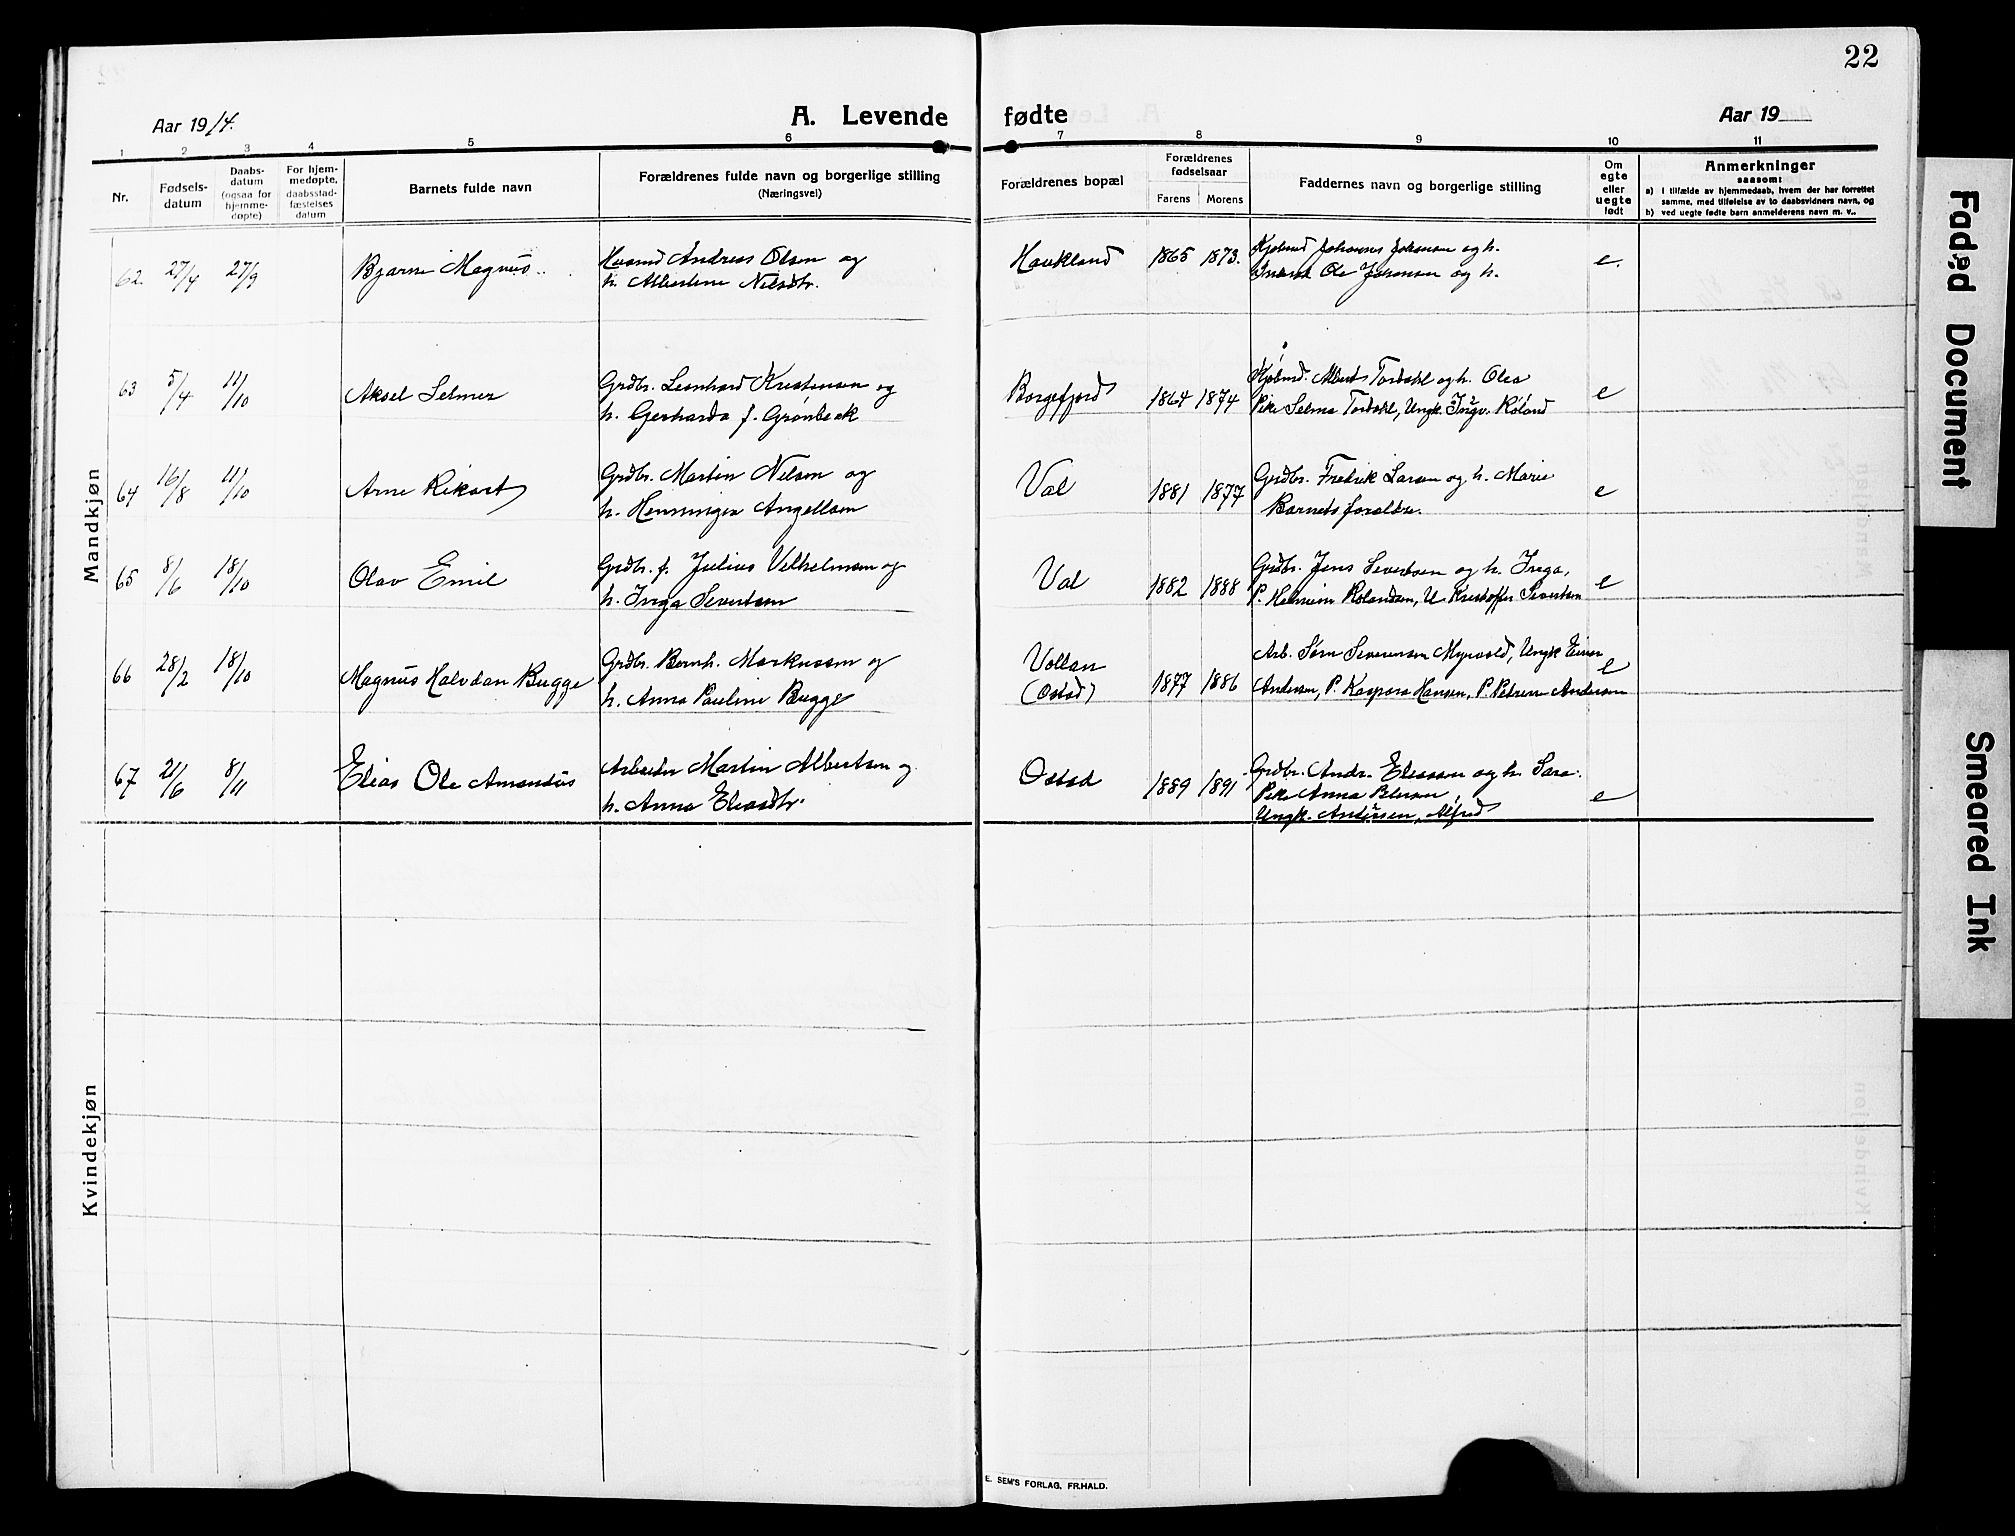 22
Aar 1914.
A. Levende
fødte
Aar 19
1 2 3 4 5 6
7 8 9 10 11
Nr.
Fødsels-
datum
Daabs-
datum
(ogsaa for
hjemme-
døpte)
For hjem-
medøpte,
daabsstad-
fæstelses
datum
Barnets fulde navn
Forældrenes fulde navn og borgerlige stilling
(Næringsvei)
Forældrenes bopæl
Forældrenes
fødselsaar
Farens Morens
Faddernes navn og borgerlige stilling
Om
egte
eller
uegte
født
Anmerkninger
saasom:
a) i tilfælde av hjemmedaab, hvem der har forrettet
samme, med tilføielse av to daabsvidners navn, og
b) ved uegte fødte barn anmelderens navn m. v..
Mandkjøn
62. 27/4 27/9 Bjarne Magnus
Husmd Andreas Olsen og
h. Albertine Nilsdtr.
Haukland 1865 1873.
Kjøbmd Johannes Johansen og h.
Ole Johansen og h.
e.
63 5/4 11/10 Aksel Selmer
Grdbr. Leonhard Kristensen og
h. Gerharda f. Grønbeck
Borgefjord 1864 1874
Kjøbmd. Albert Tordahl og h. Olea
Pike Selma Tordahl, Ungk. Ingv. Røland
e
64 16/8 11/10 Arne Rikart
Grdbr. Martin Nilsen og
h. Henninger Angellsen
Val 1881 1877
Grdbr. Fredrik Larsen og h. Marie
Barnets forældre.
e
65 8/6 18/10 Olav Emil
Grdbr. f. Julius Vilhelmsen og
h. Inga Sivertsen
Val 1882 1888
Grdbr. Jens Sivertsen og h. Inga,
P. Helmine Rolandsen, U. Kristoffer Sivertsen
e
66 28/2 18/10 Magnus Halvdan Bugge
Grdbr. Bernh. Markussen og
h. Anna Pauline Bugge
Vollan
(Ostad)
1877 1886
Arb. Søren Severinsen Myrvold, Ungk Einar
Andersen, P. Kaspara Hansen, P. Petrine Andersen
e
67 21/6 8/11 Elias Ole Amandus
Arbeider Martin Albertsen og
h. Anna Eliasdtr.
Ostad 1889 1891
Grdbr. Andr. Eliassen og h. Sara.
Pike Anna
Ungk. Andersen, Alfred
e
Kvindekjøn
E. SEM'S FORLAG, FR.HALD.
Faded Document
Smeared Ink